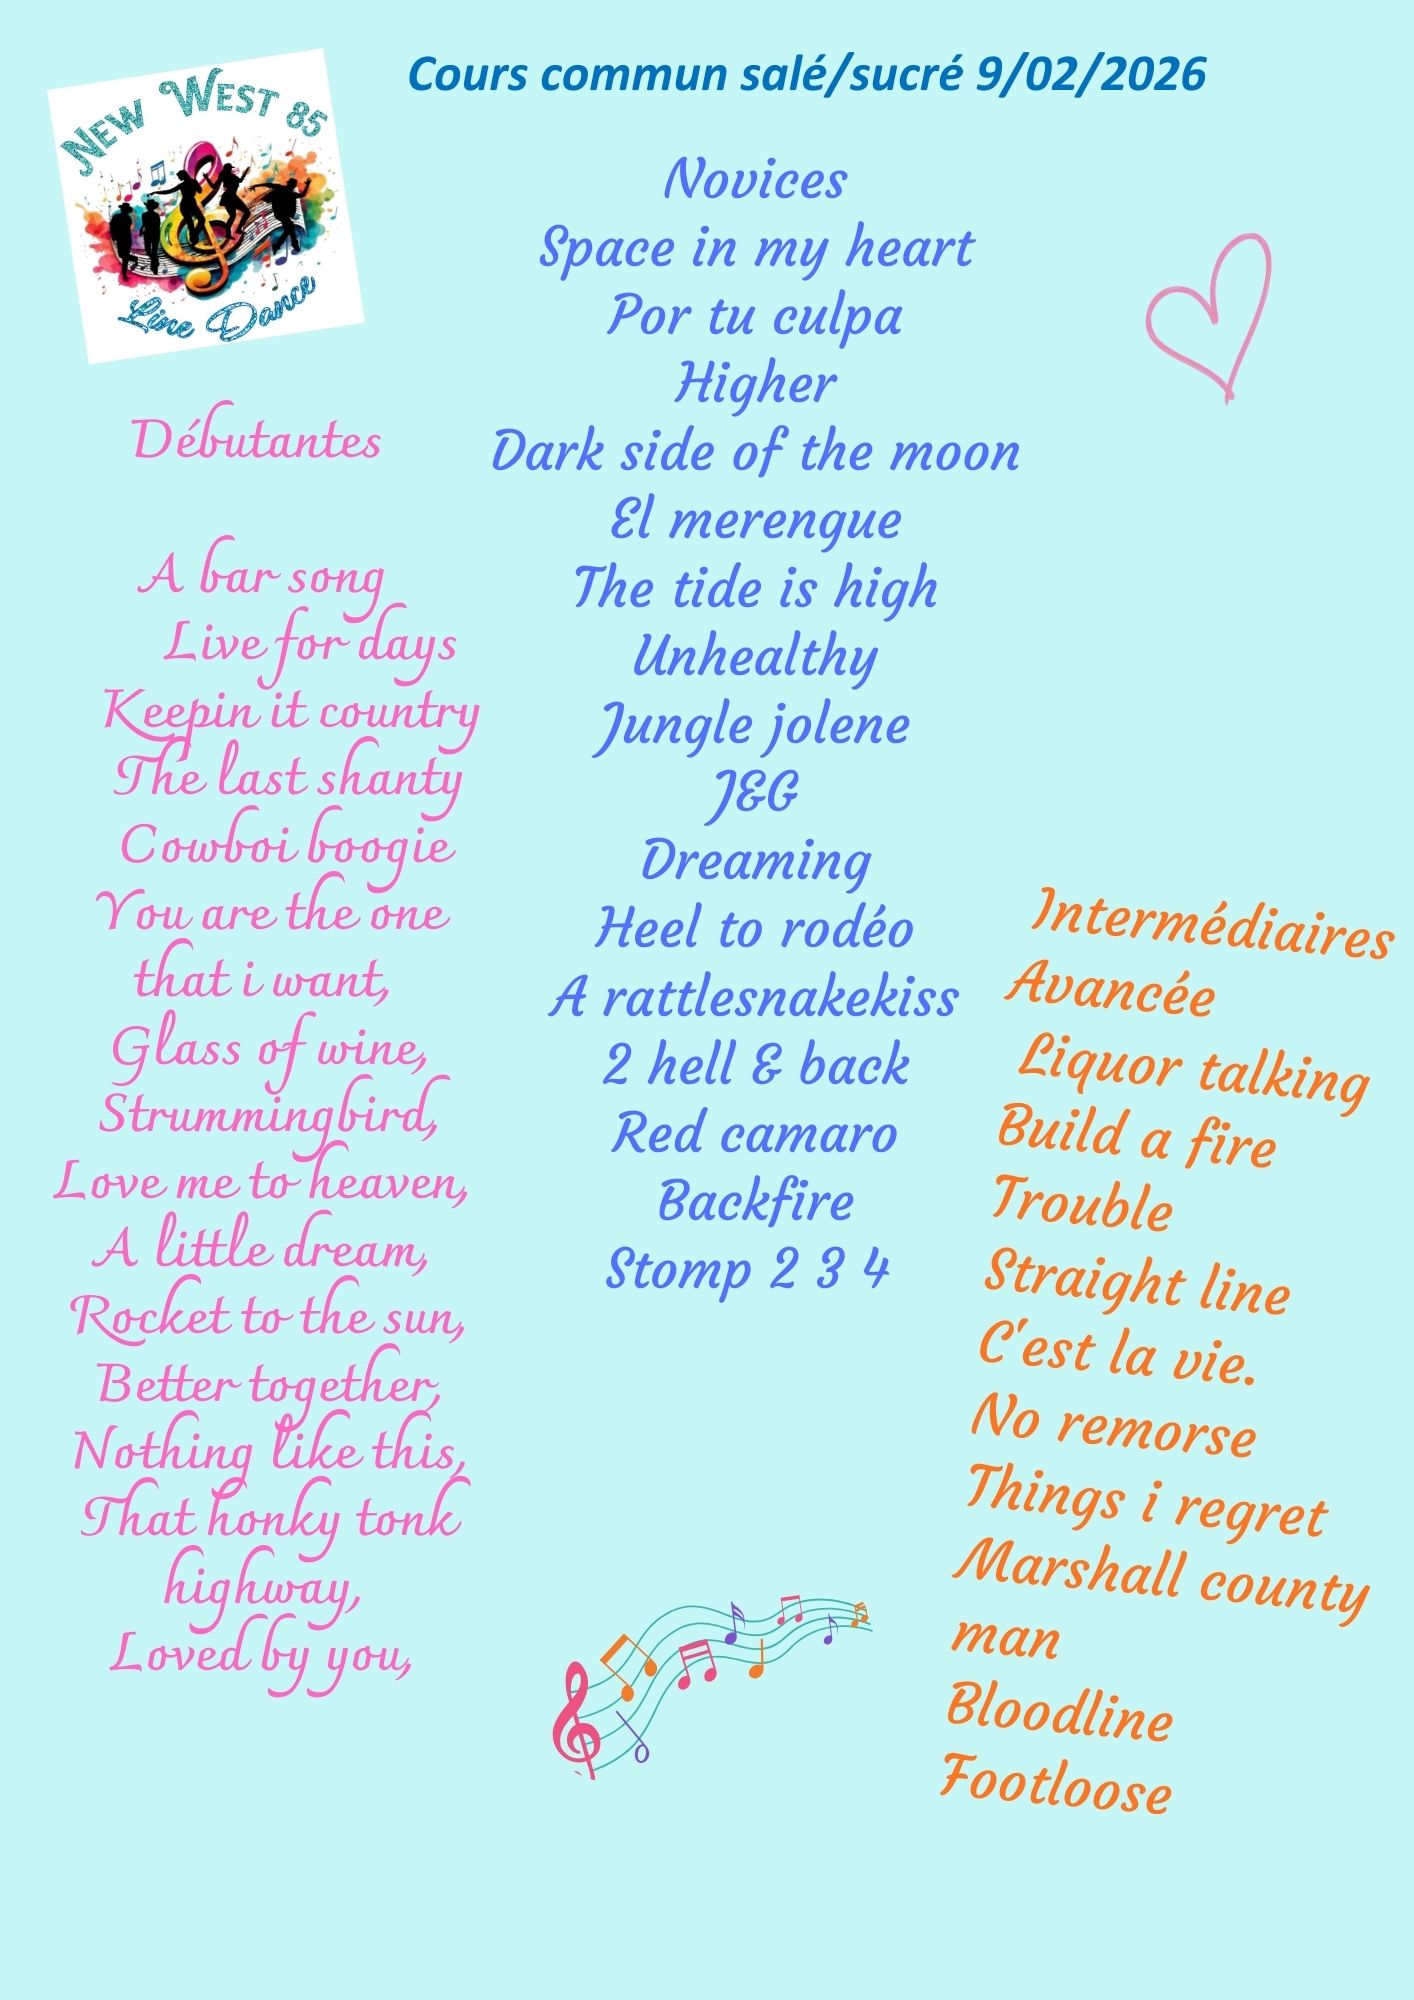 New West 85
Line Dance
Cours commun salé/sucré 9/02/2026
Débutantes
A bar song
Live for days
Keepin it country
The last shanty
Cowboi boogie
You are the one
that i want,
Glass of wine,
Strummingbird,
Love me to heaven,
A little dream,
Rocket to the sun,
Better together,
Nothing like this,
That honky tonk
highway,
Loved by you,
Novices
Space in my heart
Por tu culpa
Higher
Dark side of the moon
El merengue
The tide is high
Unhealthy
Jungle jolene
J&G
Dreaming
Heel to rodéo
A rattlesnakekiss
2 hell & back
Red camaro
Backfire
Stomp 2 3 4
Intermédiaires
Avancée
Liquor talking
Build a fire
Trouble
Straight line
C'est la vie.
No remorse
Things i regret
Marshall county
man
Bloodline
Footloose